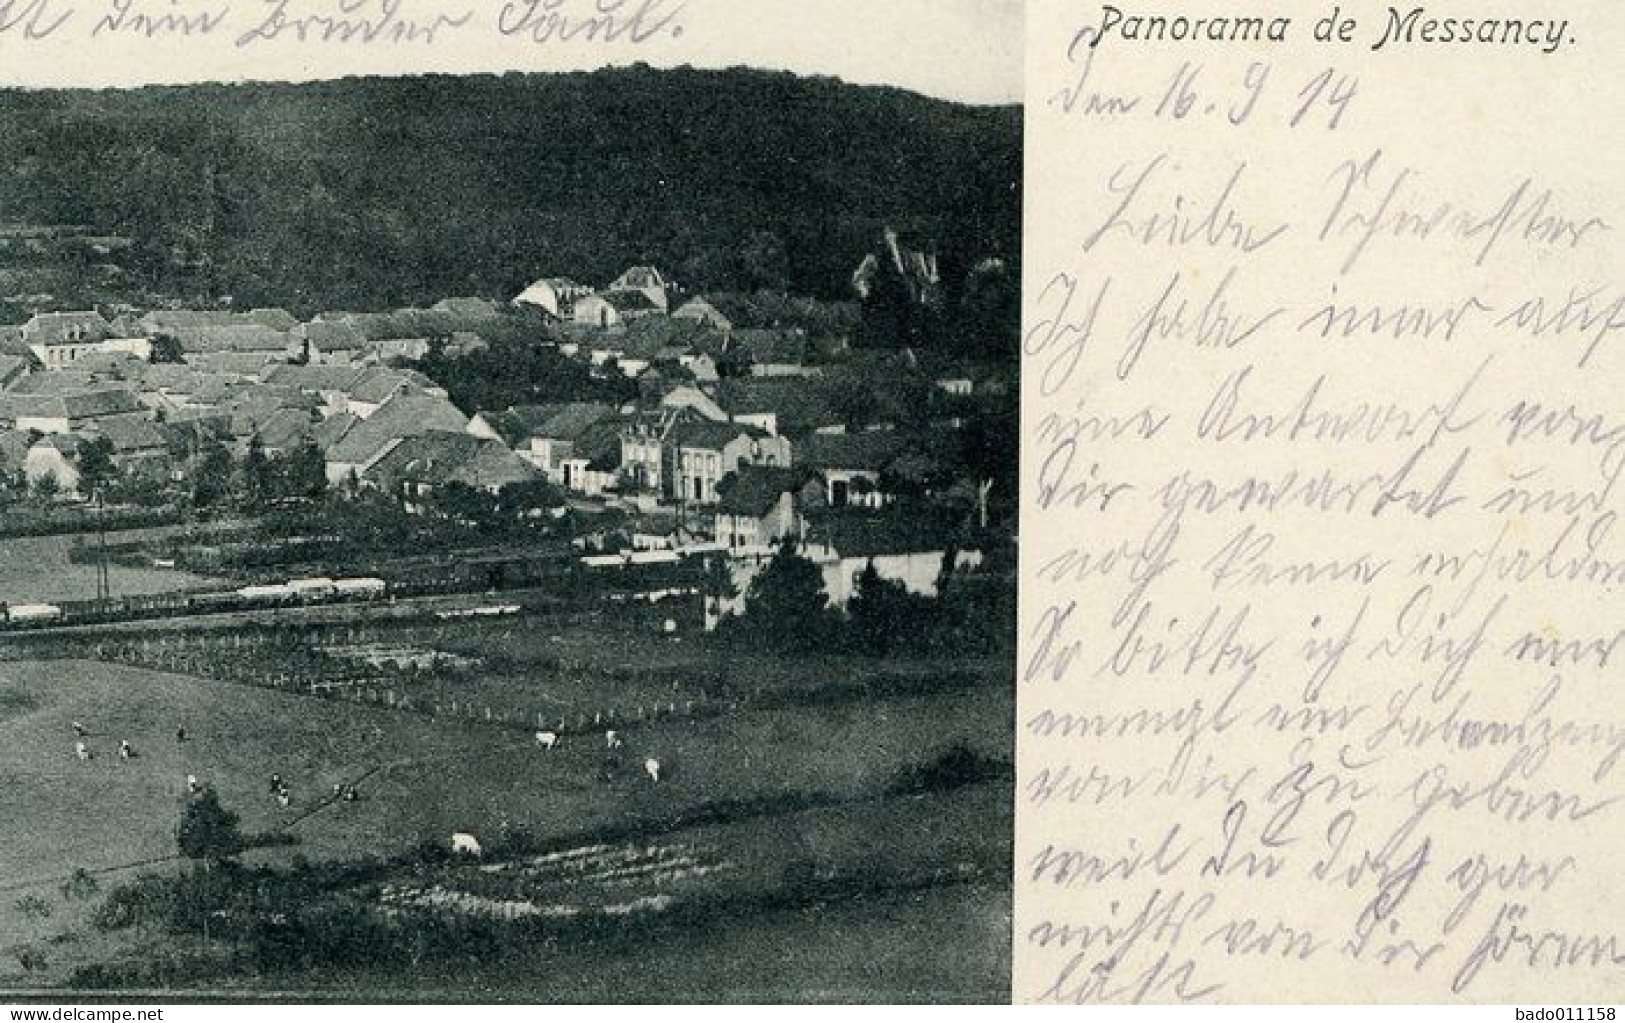 dein Bruder Paul.
Panorama de Messancy.
Den 16. 9 14
Liebe Schwester
Ich habe imer auf
eine Antwort von
Dir gewartet und
noch keine erhalden
So bitte ich Dich mir
einmal ein Lebenszeug
von Dir zu geben
weil Du doch gar
nichts von Dir hören
läst
www.delcampe.net
bado011158